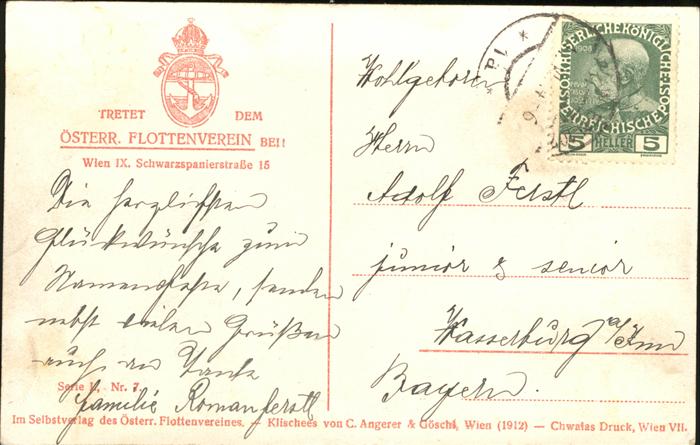 TRETET DEM
ÖSTERR. FLOTTENVEREIN BEI!
Wien IX. Schwarzspanierstraße 15
Die herzlichsten
Glückwünsche zum
Namensfeste, senden
nebst vielen Grüßen
auch an Tante
Familie Romanferstl
Wohlgeboren
Herrn
Adolf Ferstl
junior & senior
Wasserburg a/Inn
Bayern.
KAISERLICHE KÖNIGLICHE
ÖSTERREICHISCHE POST
1908
5 HELLER 5
Serie II, Nr. 7.
Im Selbstverlag des Österr. Flottenvereines. — Klischees von C. Angerer & Göschl, Wien (1912) — Chwalas Druck, Wien VII.